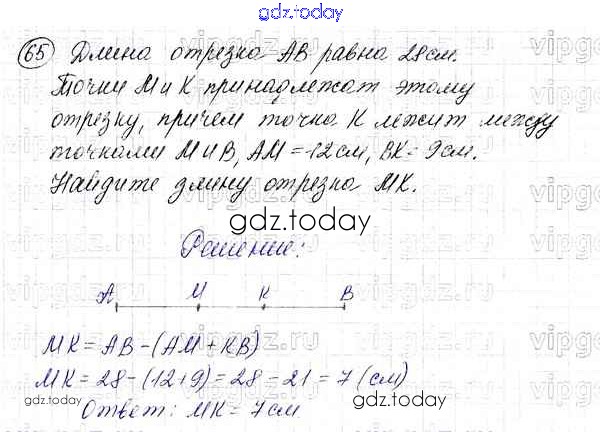 gdz.today
65 Длина отрезка АВ равна 28 см.
Точки М и К принадлежат этому
отрезку, причем точка К лежит между
точками М и В, АМ = 12 см, ВК = 9 см.
Найдите длину отрезка МК.
gdz.today
Решение:
А М К В
МК = АВ - (АМ + КВ)
МК = 28 - (12+9) = 28 - 21 = 7 (см)
gdz.today
Ответ: МК = 7 см
gdz.today